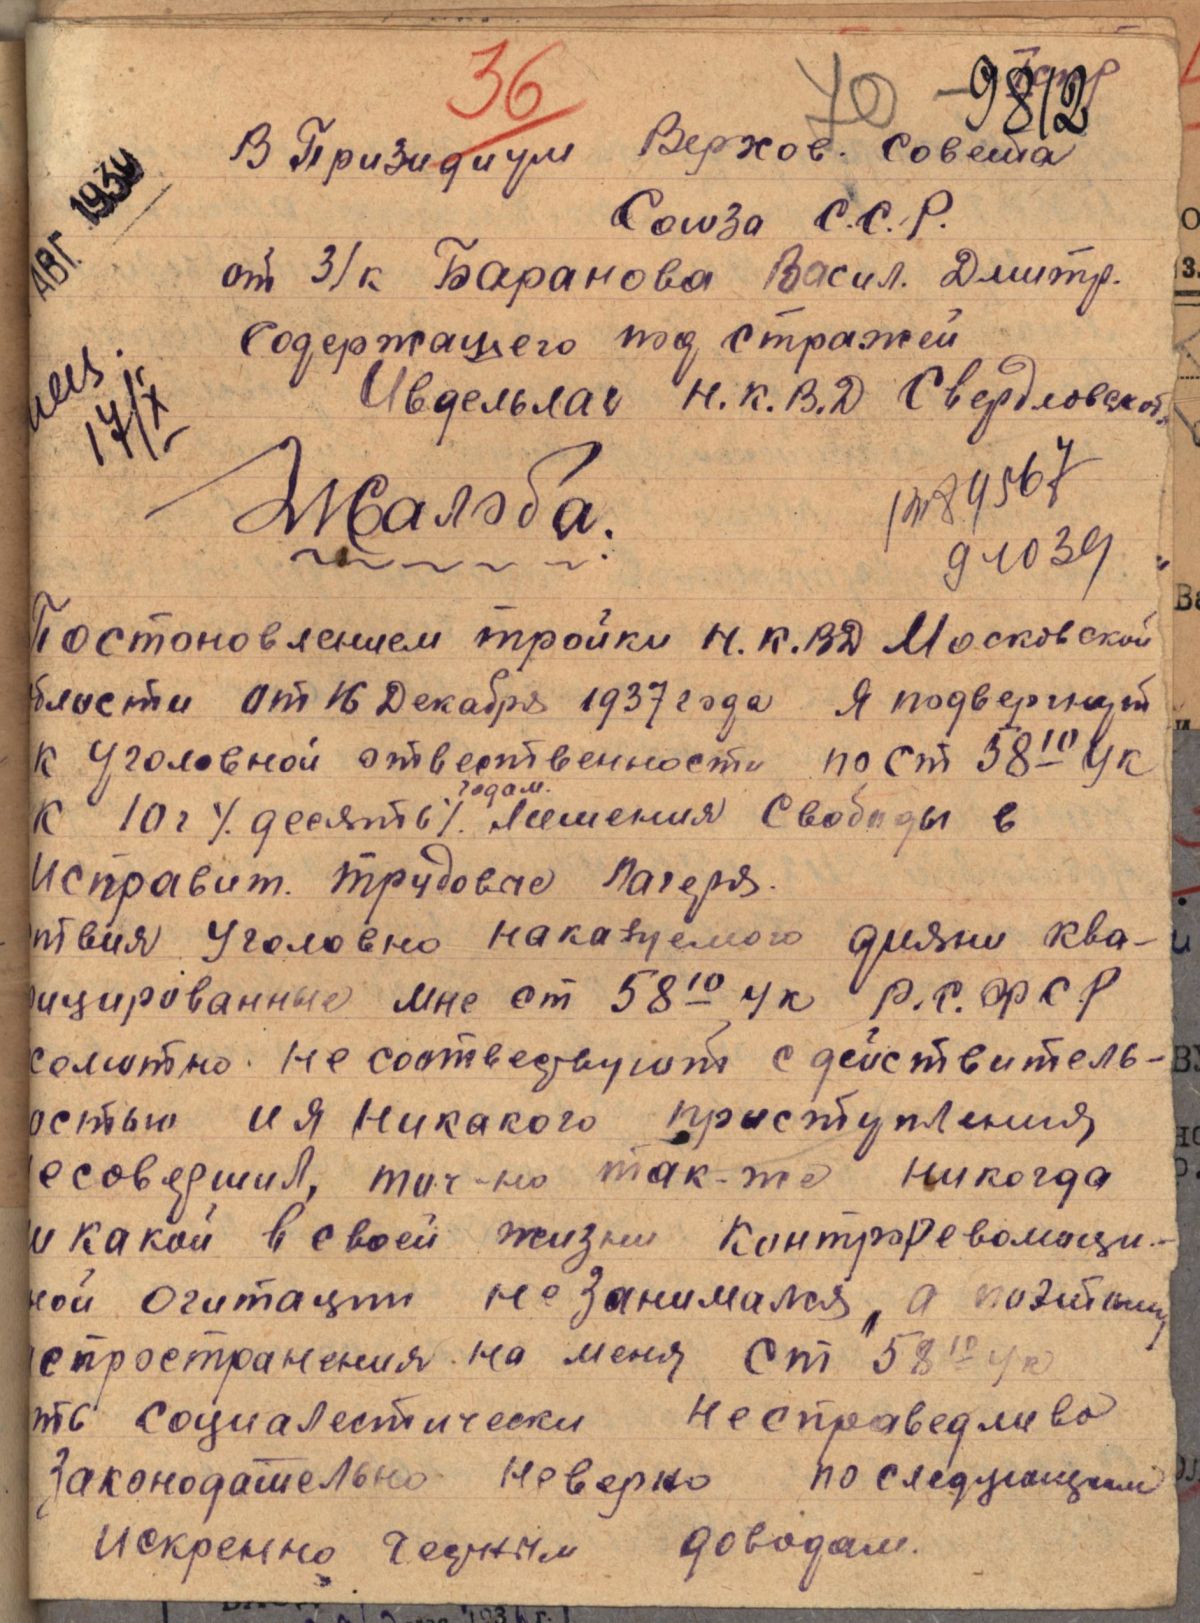 36
70
9812
АВГ. 1939
17/IX
В Призидиум Верхов. Совета
Союза С.С.Р.
от З/к Баранова Васил. Дмитр.
Содержащего под стражей
Ивдельлаг Н.К.В.Д Свердловской
Жалоба.
Постоновлением тройки Н.К.ВД Московской
бласти от 16 Декабря 1937 года я подвергнут
к уголовной отвественности по ст 58 10 Ук
к 10 г % десять % годам. Лишения Свободы в
Исправит. трудовые Лагеря.
ствия уголовно наказуемого дияни ква-
ицированные мне ст 58 10 ук Р.С.ФСР
солютно не соответвуют с действитель-
остью и я никакого приступления
е совершил, точно так-же никогда
и какой в своей жизни контрреволюци-
ной огитации не занимался, а поэтому
спространения на меня Ст 58 10 ук
ть социалестически несправедливо
Законодательно неверно последующим
Искренно доводам.